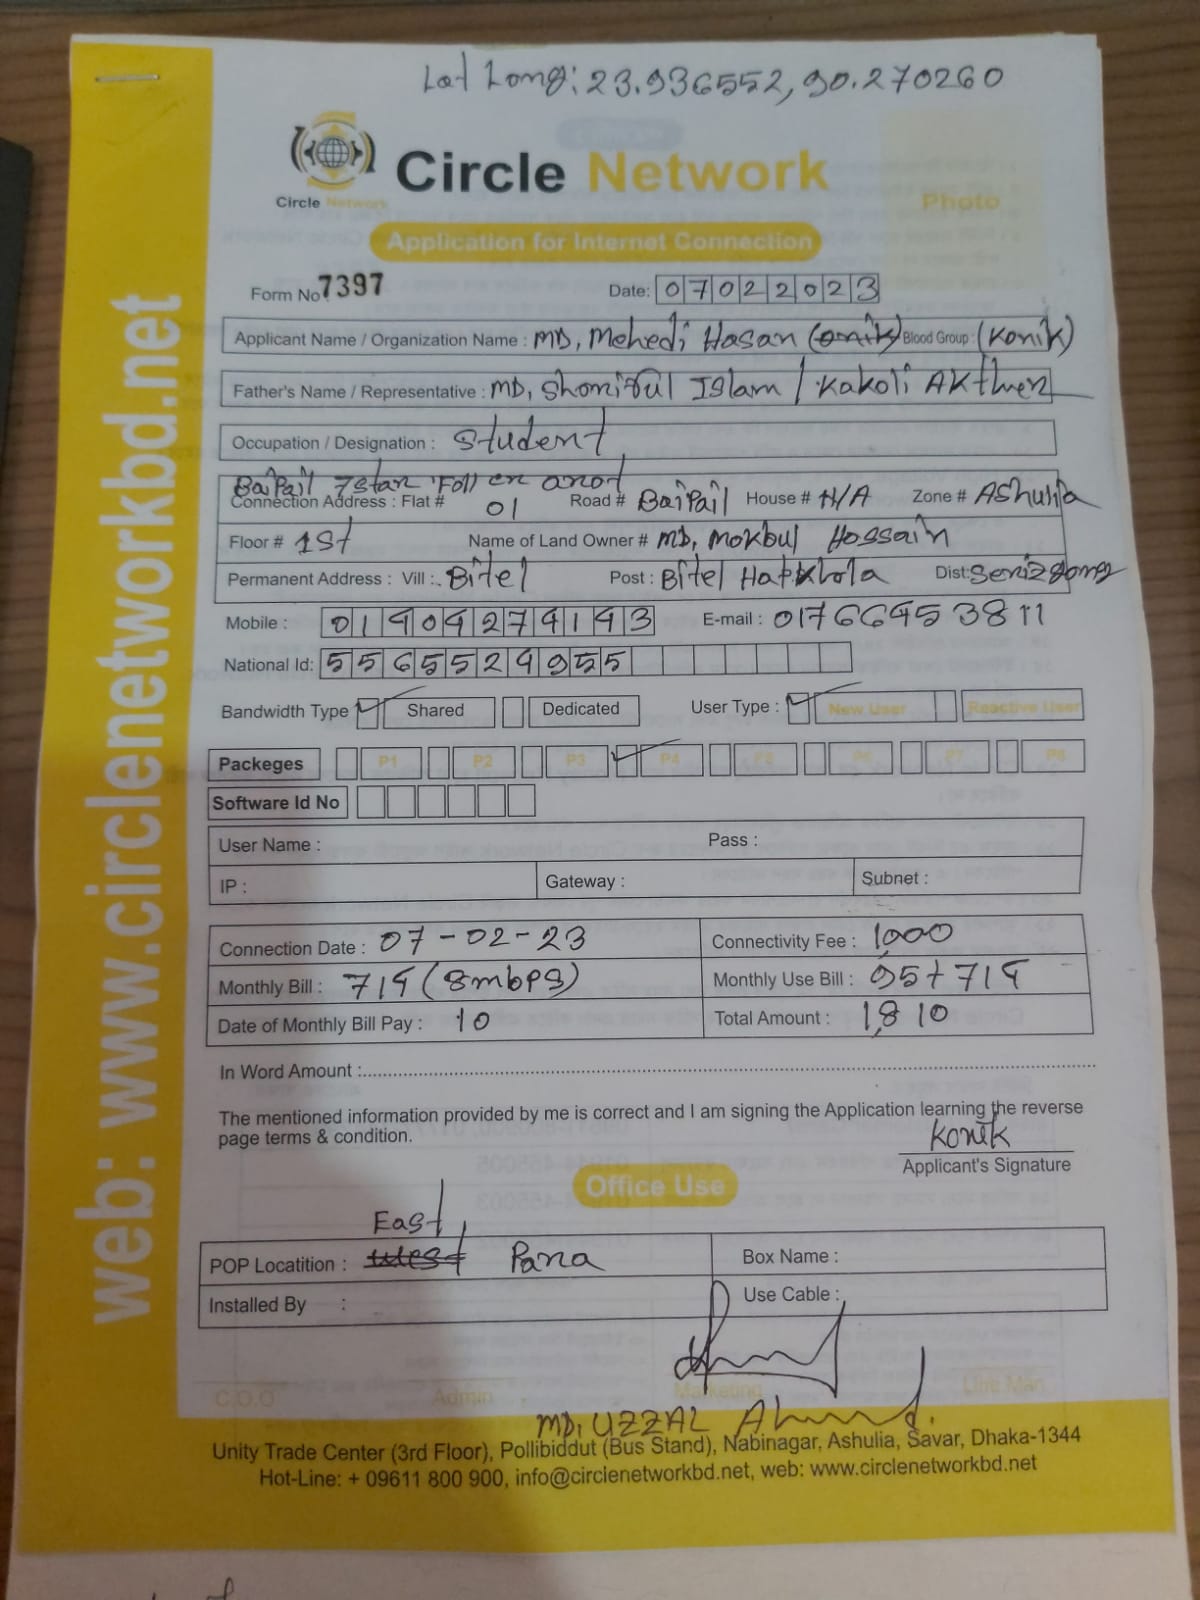 Lat Long: 23.936552, 90.270260
Circle Network
Circle Network
Photo
Application for Internet Connection
Form No 7397 Date: 07022023
Applicant Name / Organization Name : MD, Mehedi Hasan (onik) Blood Group : (Konik)
Father's Name / Representative : MD, Shoriful Islam / Kakoli Akther
Occupation / Designation : Student
BaiPail 7star
Connection Address : Flat # 01 Road # BaiPail House # N/A Zone # Ashulia
Floor # 1st Name of Land Owner # MD, Mokbul Hossain
Permanent Address : Vill : Bitel Post : Bitel Hatkhola Dist:
Mobile : 01904274193 E-mail : 017664953811
National Id: 5565524955
Bandwidth Type Shared Dedicated User Type : New User Reactive User
Packeges P1 P2 P3 P4 P5 P6 P7 P8
Software Id No
User Name : Pass :
IP : Gateway : Subnet :
Connection Date : 07-02-23 Connectivity Fee : 1000
Monthly Bill : 714 (8mbps) Monthly Use Bill : 95+714
Date of Monthly Bill Pay : 10 Total Amount : 1,810
In Word Amount :
The mentioned information provided by me is correct and I am signing the Application learning the reverse
page terms & condition.
Konik
Applicant's Signature
Office Use
East
POP Locatition : West Para Box Name :
Installed By : Use Cable :
C.O.O Admin Marketing Line Man
MD, UZZAL Ahmed.
Unity Trade Center (3rd Floor), Pollibiddut (Bus Stand), Nabinagar, Ashulia, Savar, Dhaka-1344
Hot-Line: + 09611 800 900, info@circlenetworkbd.net, web: www.circlenetworkbd.net
web: www.circlenetworkbd.net